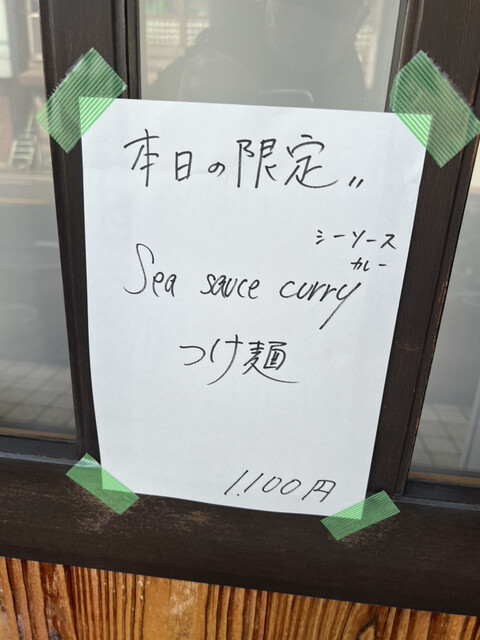 本日の限定〃
シーソース
カレー
Sea sauce curry
つけ麺
1,100円